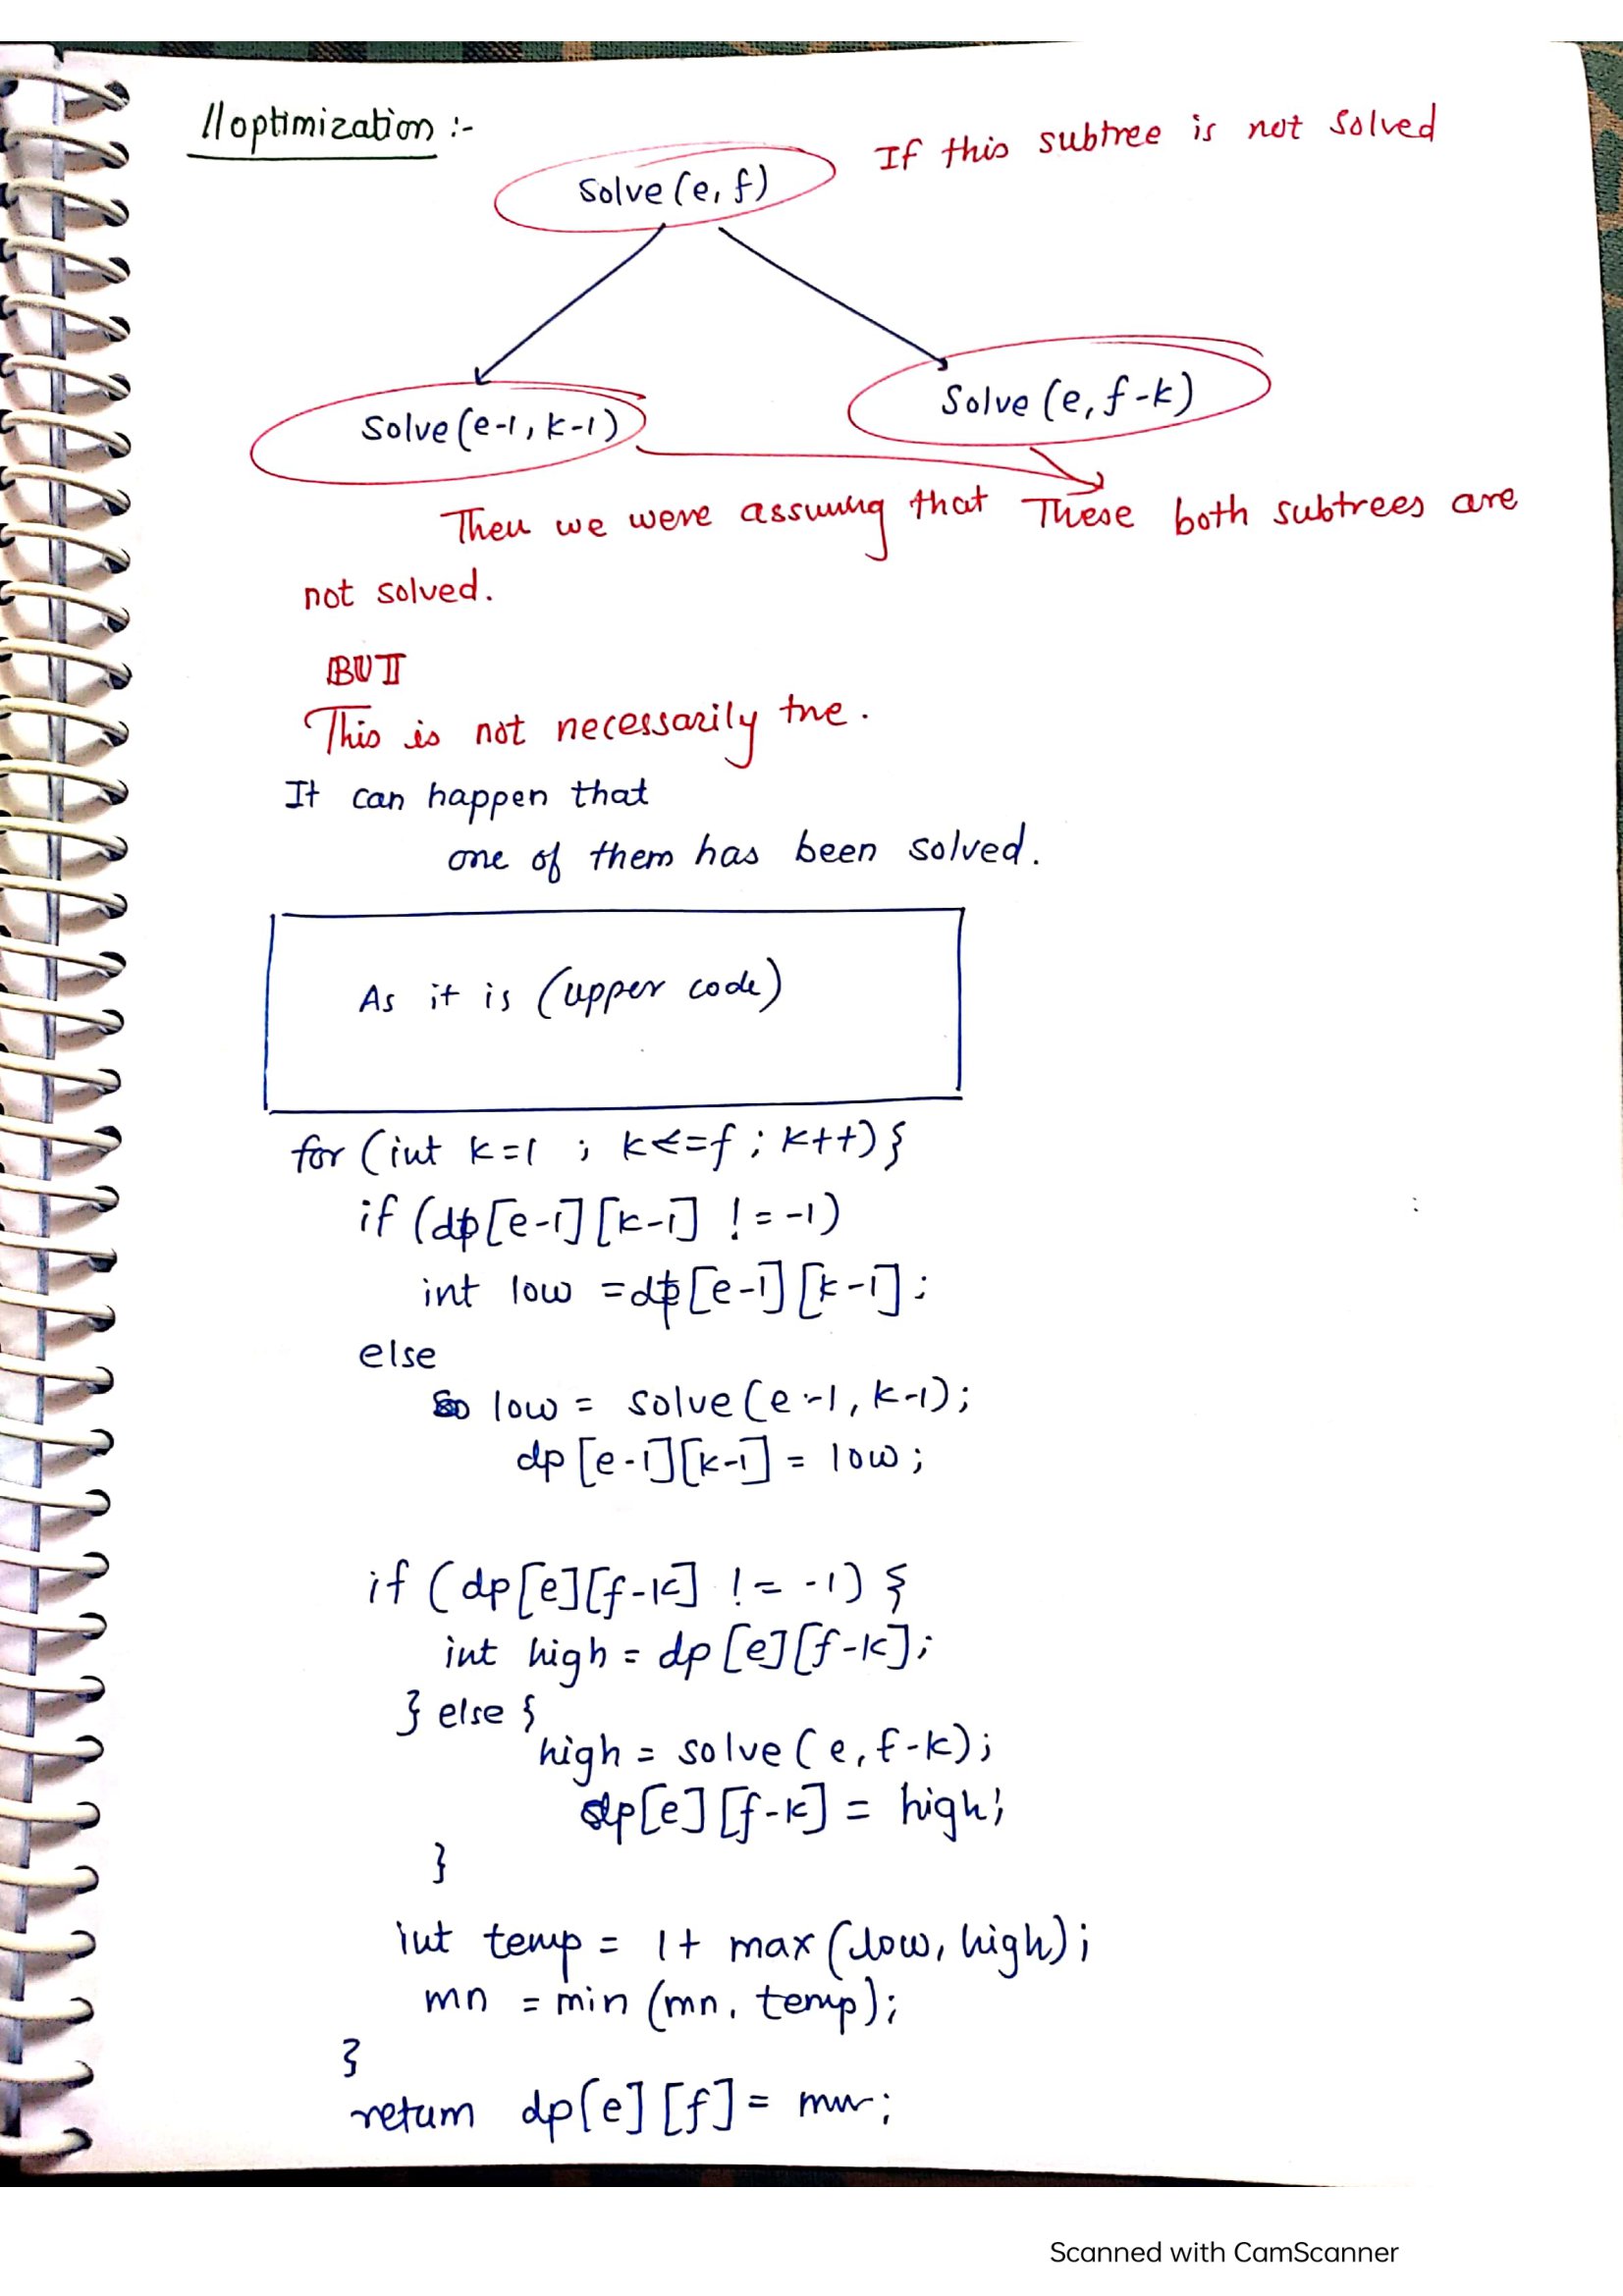 //optimization :-
If this subtree is not solved
Solve(e, f)
Solve(e-1, k-1)
Solve(e, f-k)
Then we were assuming that These both subtrees are
not solved.
BUT
This is not necessarily true.
It can happen that
one of them has been solved.
As it is (upper code)
for (int k=1 ; k<=f ; k++) {
if (dp[e-1][k-1] != -1)
int low = dp[e-1][k-1];
else
low = solve(e-1, k-1);
dp[e-1][k-1] = low;
if (dp[e][f-k] != -1) {
int high = dp[e][f-k];
} else {
high = solve(e, f-k);
dp[e][f-k] = high;
}
int temp = 1+ max(low, high);
mn = min(mn, temp);
}
return dp[e][f] = mn;
Scanned with CamScanner